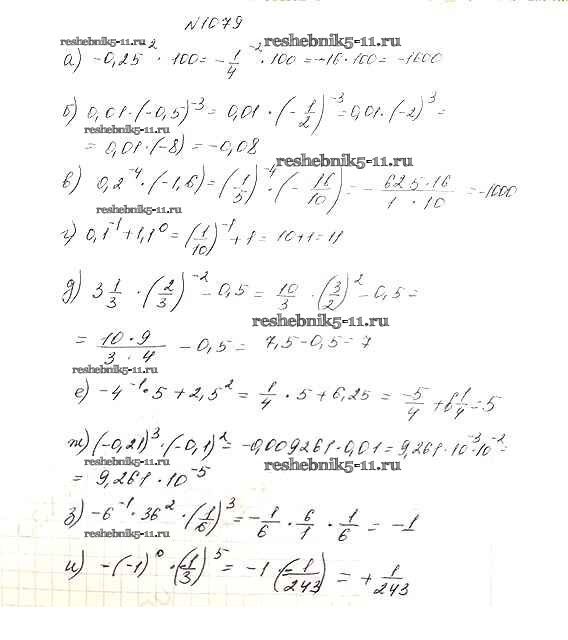 №1079
reshebnik5-11.ru reshebnik5-11.ru
а) -0,25² · 100 = -1/4⁻² · 100 = -16·100 = -1600
б) 0,01·(-0,5)⁻³ = 0,01 · (-1/2)⁻³ = 0,01·(-2)³ =
reshebnik5-11.ru
= 0,01·(-8) = -0,08
reshebnik5-11.ru
в) 0,2⁻⁴·(-1,6) = (1/5)⁻⁴·(-16/10) = -625·16/1·10 = -1000
reshebnik5-11.ru
г) 0,1⁻¹+1,1⁰ = (1/10)⁻¹+1 = 10+1 = 11
д) 3 1/3 · (2/3)⁻² - 0,5 = 10/3 · (3/2)² - 0,5 =
reshebnik5-11.ru
= 10·9/3·4 - 0,5 = 7,5-0,5 = 7
reshebnik5-11.ru
е) -4⁻¹·5+2,5² = 1/4 · 5 + 6,25 = -5/4 + 6 1/4 = 5
ж) (-0,21)³·(-0,1)² = -0,009261·0,01 = 9,261·10⁻³·10⁻² =
reshebnik5-11.ru reshebnik5-11.ru
= 9,261·10⁻⁵
з) -6⁻¹·36²·(1/6)³ = -1/6 · 6/1 · 1/6 = -1
reshebnik5-11.ru
и) -(-1)⁰ ·(-1/3)⁵ = -1·(-1/243) = +1/243